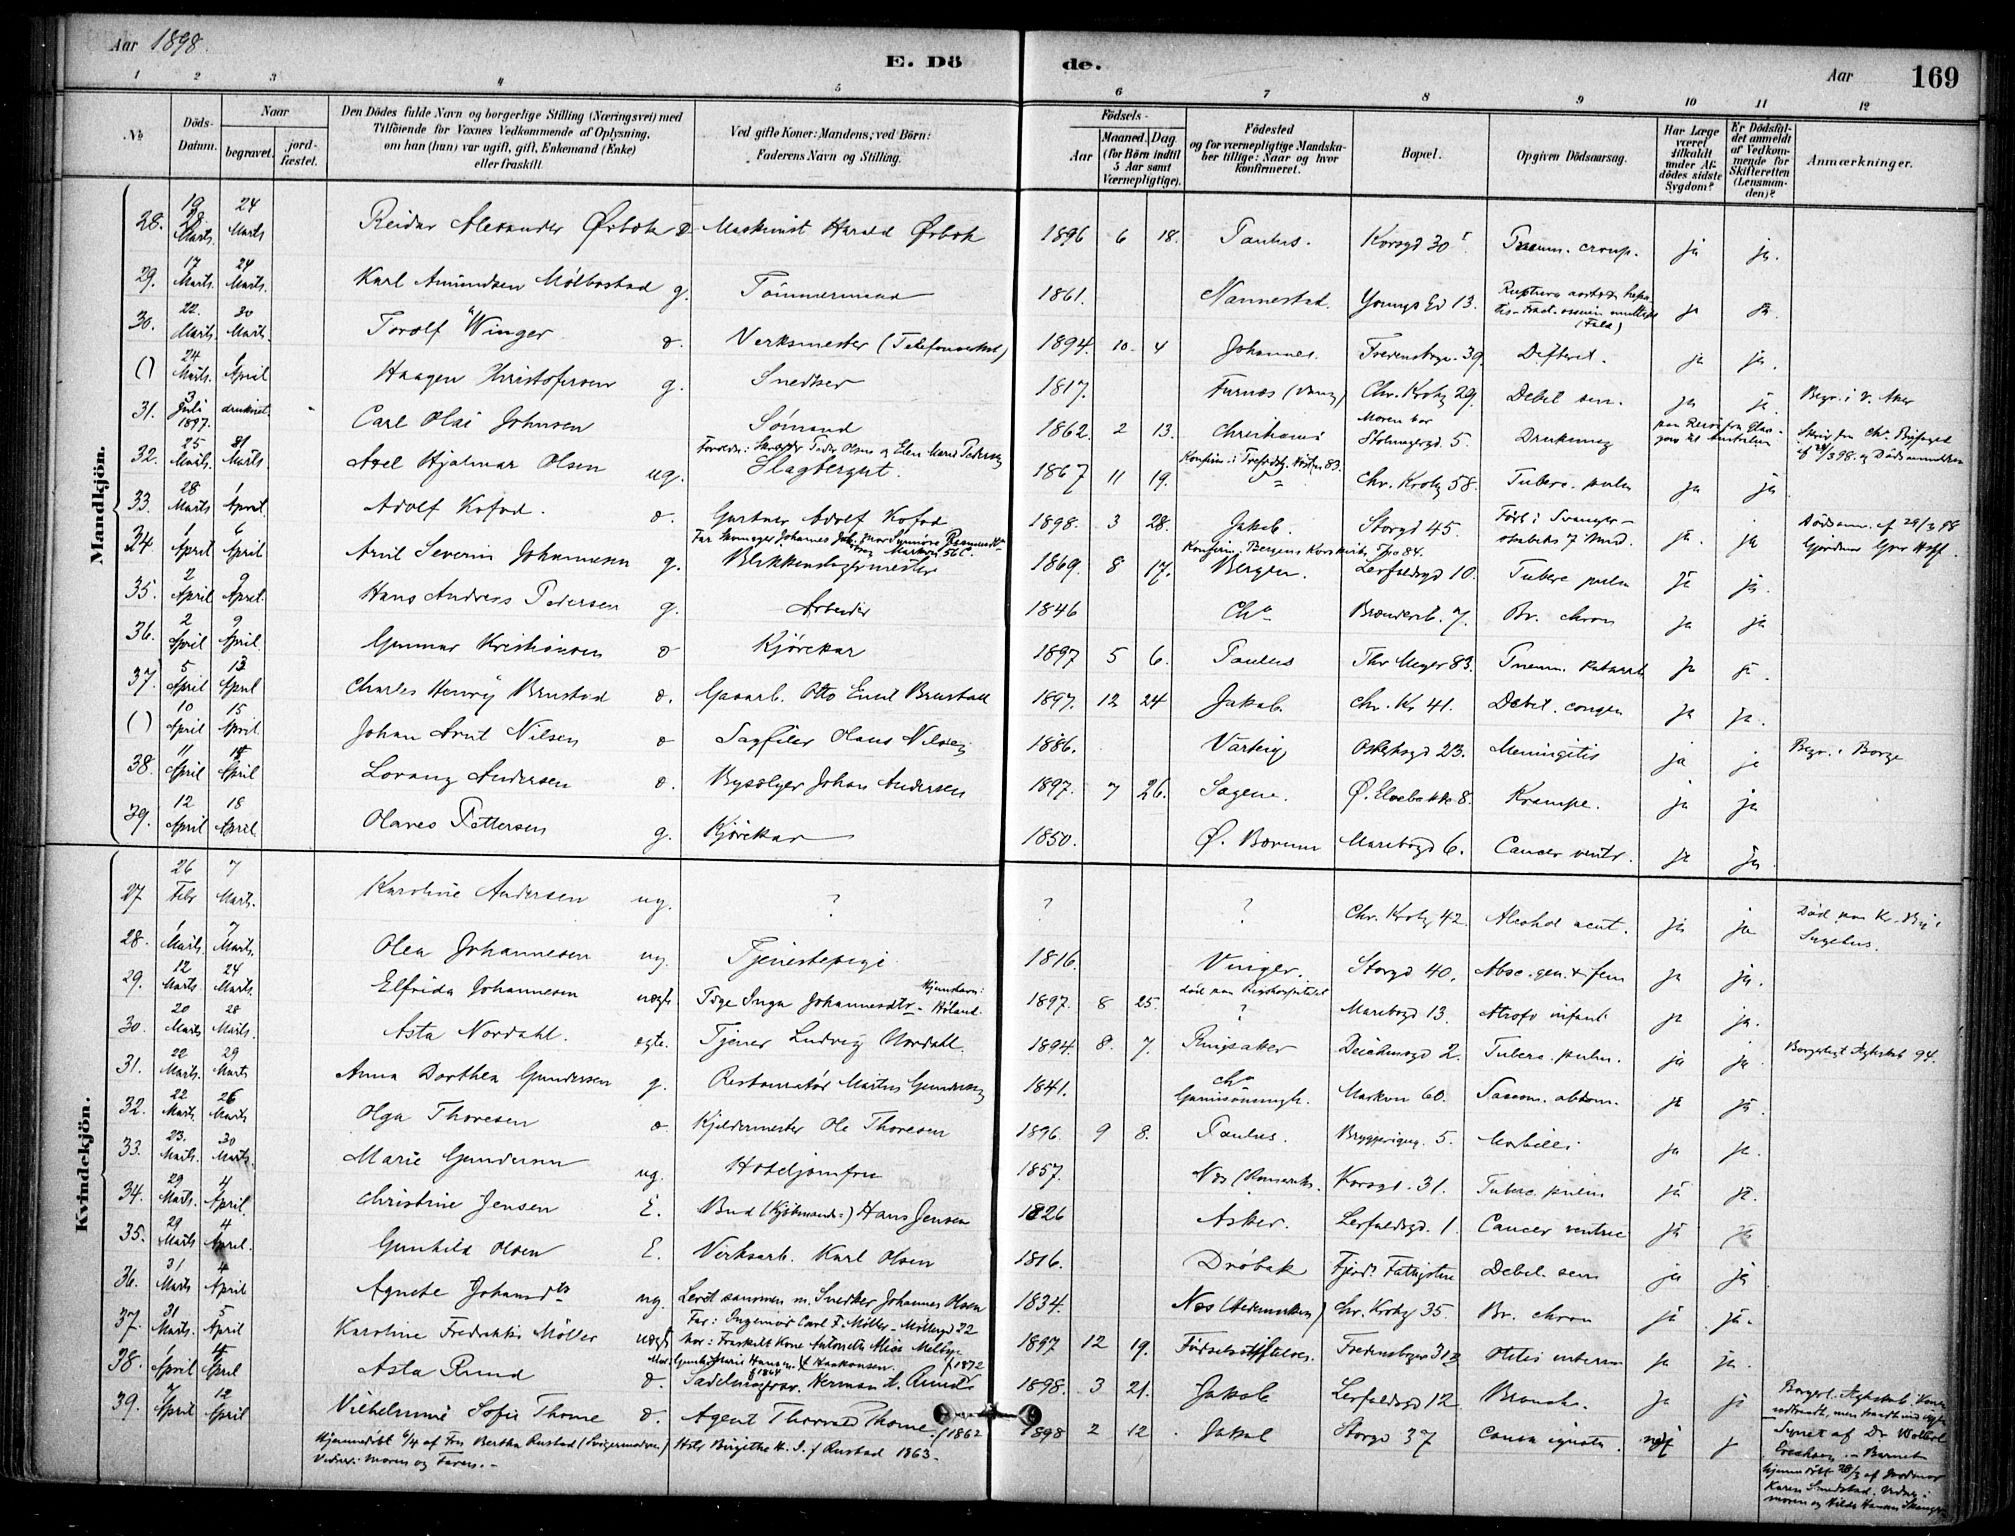 Aar 1898.
E. Döde.
Aar
169
1 2 3 4 5 6 7 8 9 10 11 12
№
Döds-Datum.
Naar
begravet.
jordfæstet.
Den Dödes fulde Navn og borgerlige Stilling (Næringsvei) med
Tilföiende for Voxnes Vedkommende af Oplysning,
om han (hun) var ugift, gift, Enkemand (Enke)
eller fraskilt.
Ved gifte Koner: Mandens; ved Börn:
Faderens Navn og Stilling.
Födsels-
Aar
Maaned. Dag
(for Börn indtil
5 Aar samt
Værnepligtige).
Födested
og for værnepligtige Mandskaber tillige: Naar og hvor
konfirmeret.
Bopæl.
Opgiven Dödsaarsag.
Har Læge været tilkaldt under Afdödes sidste Sygdom?
Er Dödsfaldet anmeldt af Vedkommende for Skifteretten (Lensmanden)?
Anmærkninger.
Mandkjön.
28. 19 Marts 24 Marts Reidar Alexander Ørbæk Maskinist Harald Ørbæk 1896 6 18. Paulus. Korsgd 30 Pneum. croup. ja ja.
29. 17 Marts. 24 Marts. Karl Amundsen Mølbastad g. Tömmermand 1861. Nannestad. Youngs Gd 13. ja ja
30. 22. Marts. 30 Marts. Torolf Winger o. Verksmester 1894. 10. 4 Johannes. Fredensborgv. 39. Difterit. ja ja.
( ) 24 Marts. 1 April Haagen Kristofersen g. Snedker 1817. Furnæs (Vang) Chr. Krohg 29. Debil. sen. ja ja. Begr. i V. Aker
31. 3 Juli 1897. druknet. Carl Olai Johnsen Sømand 1862. 2 13. Christiania Moren bor Stolmagergd. 5. Drukning
32. 25 Marts. 31 Marts. Axel Hjalmar Olsen ug. Slagbergut. 1867 11 19. Chr. Krohg 58. Tuberc. pulm ja ja
33. 28 Marts 1 April. Adolf Kofod. o. Gartner Adolf Kofod 1898. 3 28. Jakob. Storgd 45. ja. ja Dödsanm. af 29/3 98
34 1 April 6 April Arnt Severin Johannesen g. Blikkenslagermester 1869. 8 17. Bergen. Lerfaldsgd 10. Tuberc pulm ja ja.
35. 2 April 9 April. Hans Andreas Pedersen g. Arbeider 1846 Chª Brænderib. 7. Br. chron ja ja
36. 2 April 9 April. Gunnar Kristiansen o Kjørekar 1897 5 6. Paulus Thv Meyer 83. Pneum. katarrh ja ja.
37. 5 April 13 April Charles Henry Brustad o. Gaaarb. Otto Emil Brustad 1897. 12 24 Jakob. Chr. Kr 41. Debil. congen ja ja.
( ) 10 April 15 April. Johan Arnt Nilsen o Sagfiler Olaus Nilsen 1886. Varteig 23. Meningitis ja ja Begr. i Borge
38. 11 April 15 April Lorang Andersen o. Johan Andersen 1897. 7 26. Sagene. Ø. Elvebakke 8. Krampe. ja ja
39. 12 April 18 April. Olaves Pettersen g. Kjørekar 1850. Ø. Bærum Maribogd 6. Cancer ventr. ja ja
Kvindekjön.
27 26 Febr 7 Marts. Karoline Andersen ug. ? ? ? Chr. Krohg 42. Alcohol acut. ja ja Död paa Kr. Bys Sygehus.
28. 1 Marts. 7 Marts. Olea Johannesen ug. Tjenestepige. 1816. Vinger. Storgd 40. ja ja.
29. 12 Marts 24 Marts. Elfrida Johannesen uægt. Pige Inga Johannesdtr - Høland. 1897. 8 25. Död paa Rigshospitalet ? Maribogd 13. Atrofi infant ja ja.
30. 20 Marts 28 Marts. Asta Nordahl. egte. Tjener Ludvig Nordahl. 1894. 8. 7. Ringsaker Deichmsgd 2. Tuberc. pulm. ja ja Borgerligt Ægteskab 94.
31. 22 Marts. 29 Marts Anna Dorthea Gundersen g. Restauratör Martin Gundersen 1841. Chª Garnisonsmgh. Markvn 60. Sarcom. abdom. ja ja.
32. 22 Marts. 26 Marts Olga Thoresen o. Kjeldermester Ole Thoresen 1896. 9 8. Paulus. 5. Morbilli ja ja.
33. 23. Marts. 30 Marts. Marie Gundersen ug. Hoteljomfru 1857. Nes (Romerike. Korsgd. 31. Tuberc. pulm ja ja.
34. 29 Marts. 4 April. Christine Jensen E. Bud Hans Jensen 1826 Asker. Lerfaldsgd. 1. Cancer ventric ja ja
35. 29 Marts 4 April. Gunhild Olsen E. Verksarb. Karl Olsen 1816. Drøbak Debil. sen ja ja
36. 31 Marts 4 April Agnete Johansdtr ug. Levet sammen m. Snedker Johannes Olsen 1834. Nes (Hedemarken) Chr. Krohg 35. Br. chron ja ja.
37. 31 Marts. 5 April Karoline Fredrikke Möller uægt. Far: Ingeniör Carl F. Möller - Möllergd 22
Mor: Fraskilt Kone Antonette Alise Melbye 1897 12 19. Födselsstiftelsen. Fredensborgvn 31B Otitis interna ja ja.
38. 1 April 4 April Asta Ruud o. Sadelmager Herman A. Ruud 1898. 3 21. Jakob Lerfaldsgd 12 Bronch. ja ja
39. 7 April 12 April Vilhelmine Sofie Thorne o. Agent Thorvald Thorne. f 1862 1898 2 12. Jakob Storgd 37 Causa ignota. nej j
Hjemmedöbt 6/4 af Fru Bertha Rustad (Svigermoderen) Birgithe H. S. f Rustad 1863.
Vidner: Moren og Faren. -
Synet af Dr
- Barnet
hjemmedöbt 28/3 af Jordmor
Karen Smedstad. Vidner:
moren og Hilda Hansen